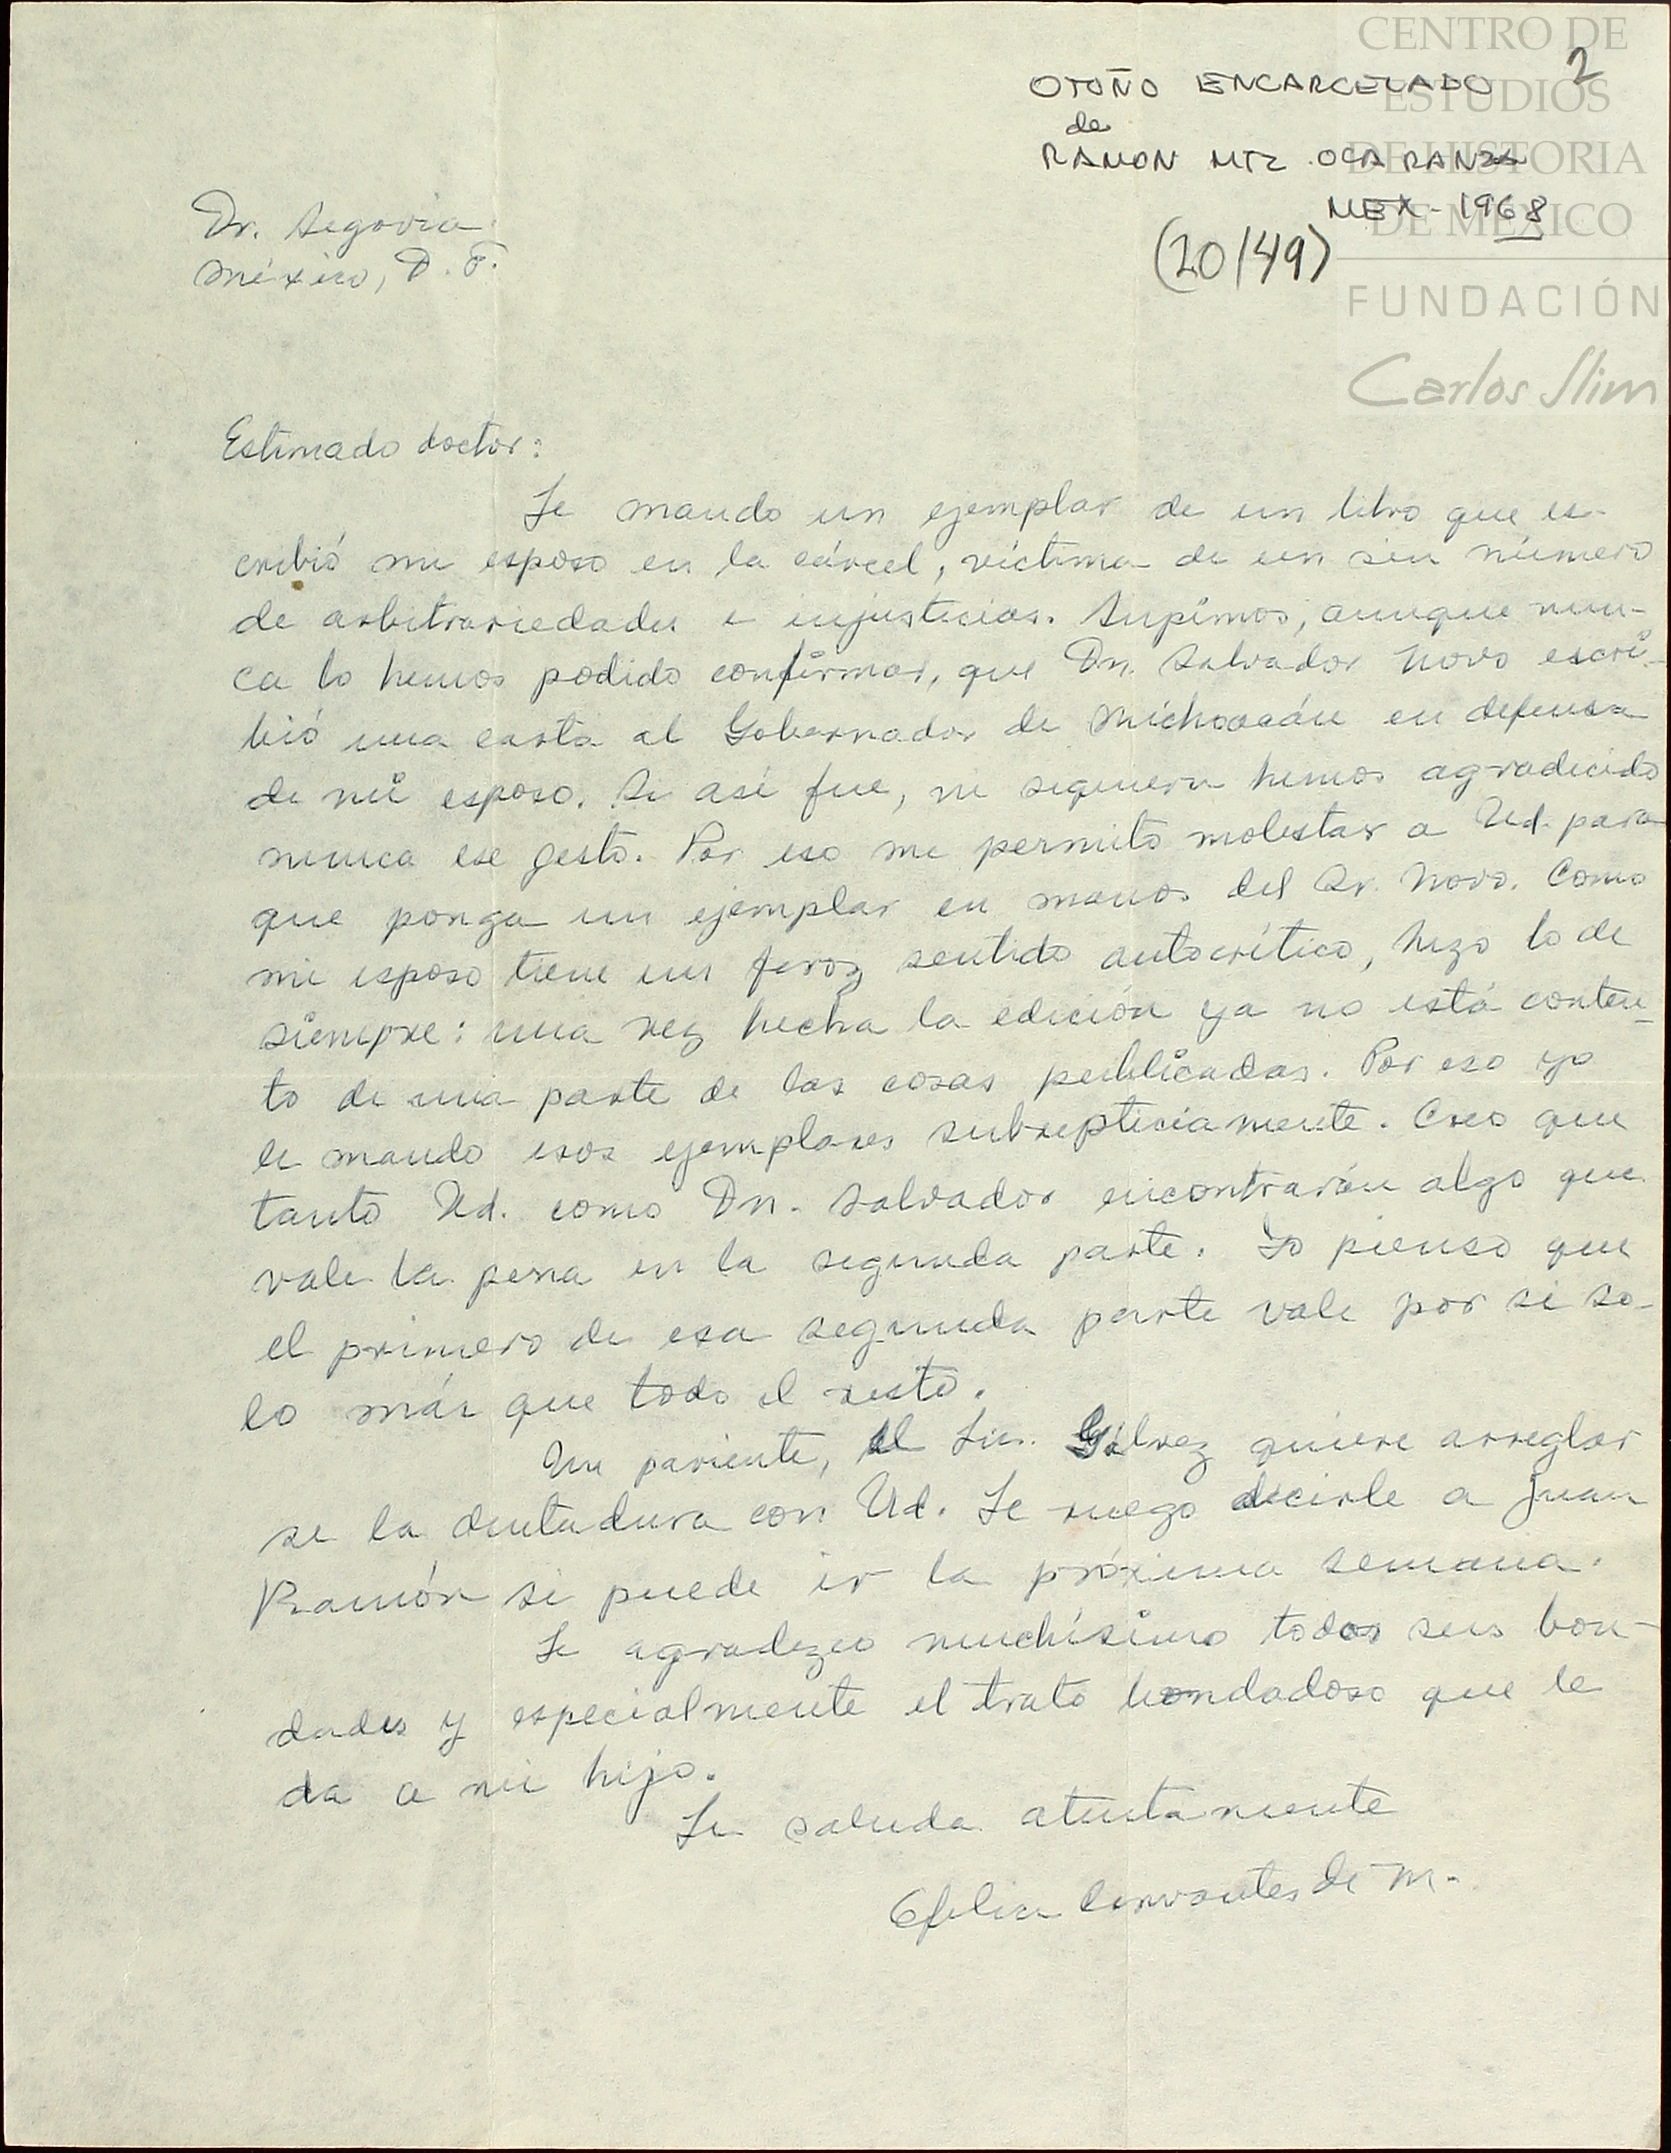 CENTRO DE
ESTUDIOS
DE HISTORIA
DE MÉXICO
FUNDACIÓN
Carlos Slim
2
OTOÑO ENCARCELADO
de
RAMON MTZ OCARANZA
MEX - 1968
(20/49)
Dr. Segovia
México, D. F.
Estimado doctor:
Le mando un ejemplar de un libro que es-
cribió mi esposo en la cárcel, víctima de un sin número
de arbitrariedades e injusticias. Supimos, aunque nun-
ca lo hemos podido confirmar, que Dn. Salvador Novo escri-
bió una carta al Gobernador de Michoacán en defensa
de mi esposo. Si así fue, ni siquiera hemos agradecido
nunca ese gesto. Por eso me permito molestar a Ud. para
que ponga un ejemplar en manos del Sr. Novo. Como
mi esposo tiene un feroz sentido autocrítico, hizo lo de
siempre: una vez hecha la edición ya no está conten-
to de una parte de las cosas publicadas. Por eso yo
le mando esos ejemplares subrepticiamente. Creo que
tanto Ud. como Dn. Salvador encontrarán algo que
vale la pena en la segunda parte. Yo pienso que
el primero de esa segunda parte vale por si so-
lo más que todo el resto.
Un pariente, el Lic. Gálvez quiere arreglar
se la dentadura con Ud. Le ruego decirle a Juan
Ramón si puede ir la próxima semana.
Le agradezco muchísimo todas sus bon-
dades y especialmente el trato bondadoso que le
da a mi hijo.
Le saluda atentamente
Ofelia Cervantes de M.